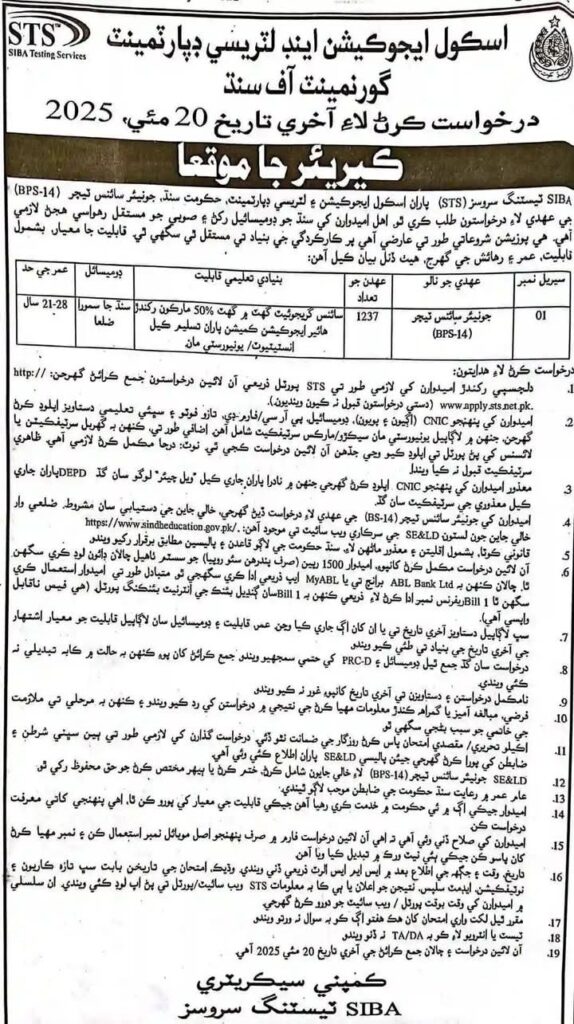 STS
SIBA Testing Services
اسڪول ايجوڪيشن اينڊ لٽريسي ڊپارٽمينٽ
گورنمينٽ آف سنڌ
درخواست ڪرڻ لاءِ آخري تاريخ 20 مئي، 2025
ڪيريئر جا موقعا
SIBA ٽيسٽنگ سروسز (STS) پاران اسڪول ايجوڪيشن ۽ لٽريسي ڊپارٽمينٽ، حڪومت سنڌ، جونيئر سائنس ٽيچر (BPS-14)
جي عهدي لاءِ درخواستون طلب ڪري ٿو، اهل اميدوارن کي سنڌ جو ڊوميسائل رکڻ ۽ صوبي جو مستقل رهواسي هجڻ لازمي
آهي. هي پوزيشن شروعاتي طور تي عارضي آهي پر ڪارڪردگي جي بنياد تي مستقل ٿي سگهي ٿي. قابليت جا معيار، بشمول
قابليت، عمر ۽ رهائش جي گهرج، هيٺ ڏنل بيان ڪيل آهن:
سيريل نمبر عهدي جو نالو عهدن جو تعداد بنيادي تعليمي قابليت ڊوميسائل عمر جي حد
01 جونيئر سائنس ٽيچر (BPS-14) 1237 سائنس گريجوئيٽ گهٽ ۾ گهٽ 50% مارڪون رکندڙ سنڌ جا سمورا ضلعا 21-28 سال
هائير ايجوڪيشن ڪميشن پاران تسليم ڪيل
انسٽيٽيوٽ/ يونيورسٽي مان.
درخواست ڪرڻ لاءِ هدايتون:
1. دلچسپي رکندڙ اميدوارن کي لازمي طور تي STS پورٽل ذريعي آن لائين درخواستون جمع ڪرائڻ گهرجن: http://
www.apply.sts.net.pk. (دستي درخواستون قبول نه ڪيون وينديون).
2. اميدوارن کي پنهنجو CNIC (اڳيون ۽ پويون)، ڊوميسائل، پي آر سي/فارم-ڊي، تازو فوٽو ۽ سڀئي تعليمي دستاويز اپلوڊ ڪرڻ
گهرجن، جنهن ۾ لاڳاپيل يونيورسٽي مان سيڪڙو/مارڪس سرٽيفڪيٽ شامل آهن. اضافي طور تي، ڪنهن به گهربل سرٽيفڪيشن يا
لائسنس کي پڻ پورٽل تي اپلوڊ ڪيو وڃي جڏهن آن لائين درخواست ڪجي ٿي. نوٽ: درجا مڪمل ڪرڻ لازمي آهي. ظاهري
سرٽيفڪيٽ قبول نه ڪيا ويندا.
3. معذور اميدوارن کي پنهنجو CNIC اپلوڊ ڪرڻ گهرجي جنهن ۾ نادرا پاران جاري ڪيل "ويل چيئر" لوگو سان گڏ DEPD پاران جاري
ڪيل معذوري جي سرٽيفڪيٽ سان گڏ.
4. اميدوارن کي جونيئر سائنس ٽيچر (BS-14) جي عهدي لاءِ درخواست ڏيڻ گهرجي، خالي جاين جي دستيابي سان مشروط. ضلعي وار
خالي جاين جون لسٽون SE&LD جي سرڪاري ويب سائيٽ تي موجود آهن: https://www.sindheducation.gov.pk/.
5. قانوني ڪوٽا، بشمول اقليتن ۽ معذور ماڻهن لاءِ، سنڌ حڪومت جي لاڳو قاعدن ۽ پاليسين مطابق برقرار رکيو ويندو.
6. آن لائين درخواست مڪمل ڪرڻ کانپوءِ، اميدوار 1500 رپين (صرف پندرهن سئو روپيا) جو سسٽم ٺاهيل چالان ڊائون لوڊ ڪري سگهن
ٿا. چالان ڪنهن به ABL Bank Ltd برانچ تي يا MyABL ايپ ذريعي ادا ڪري سگهجي ٿو. متبادل طور تي اميدوار استعمال ڪري
سگهن ٿا 1 Bill ريفرنس نمبر ادا ڪرڻ لاءِ ذريعي ڪنهن به 1Bill سان ڳنڍيل بئنڪ جي انٽرنيٽ بئنڪنگ پورٽل. (هي فيس ناقابل
واپسي آهي).
7. سڀ لاڳاپيل دستاويز آخري تاريخ تي يا ان کان اڳ جاري ڪيا وڃن. عمر، قابليت ۽ ڊوميسائل سان لاڳاپيل قابليت جو معيار اشتهار
جي آخري تاريخ جي بنياد تي طئي ڪيو ويندو.
8. درخواست سان گڏ جمع ٿيل ڊوميسائل ۽ PRC-D کي حتمي سمجهيو ويندو. جمع ڪرائڻ کان پوءِ ڪنهن به حالت ۾ ڪابه تبديلي نه
ڪئي ويندي.
9. نامڪمل درخواستن ۽ دستاويزن تي آخري تاريخ کانپوءِ غور نه ڪيو ويندو.
10. فرضي، مبالغه آميز يا گمراهه ڪندڙ معلومات مهيا ڪرڻ جي نتيجي ۾ درخواستن کي رد ڪيو ويندو ۽ ڪنهن به مرحلي تي ملازمت
جي خاتمي جو سبب بڻجي سگهي ٿو.
11. اڪيلو تحريري/ مقصدي امتحان پاس ڪرڻ روزگار جي ضمانت نٿو ڏئي. درخواست گذارن کي لازمي طور تي ٻين سڀني شرطن ۽
ضابطن کي پورا ڪرڻ گهرجي جيئن پاليسي SE&LD پاران اطلاع ڪئي وئي آهي.
12. SE&LD جونيئر سائنس ٽيچر (BPS-14) لاءِ خالي جايون شامل ڪرڻ، ختم ڪرڻ يا ٻيهر مختص ڪرڻ جو حق محفوظ رکي ٿو.
13. عام عمر ۾ رعايت سنڌ حڪومت جي ضابطن موجب لاڳو ٿيندي.
14. اميدوار جيڪي اڳ ۾ ئي حڪومت ۾ خدمت ڪري رهيا آهن جيڪي قابليت جي معيار کي پورو ڪن ٿا، اهي پهنجي کاتي معرفت
درخواست ڪن.
15. اميدوارن کي صلاح ڏني وئي آهي ته اهي آن لائين درخواست فارم ۾ صرف پنهنجو اصل موبائل نمبر استعمال ڪن ۽ نمبر مهيا ڪرڻ
کان پاسو ڪن جيڪي ٻئي نيٽ ورڪ ۾ تبديل ڪيا ويا آهن.
16. تاريخ، وقت ۽ جڳهه جي اطلاع بعد ۾ ايس ايم ايس الرٽ ذريعي ڏني ويندي. وڌيڪ، امتحان جي تاريخن بابت سڀ تازه ڪاريون ۽
نوٽيفڪيشن، ايڊمٽ سلپس، نتيجن جو اعلان يا ٻي ڪا به معلومات STS ويب سائيٽ/پورٽل تي پڻ اپ لوڊ ڪئي ويندي. ان سلسلي
۾ اميدوارن کي وقت بوقت پورٽل / ويب سائيٽ جو دورو ڪرڻ گهرجي.
17. مقرر ٿيل لکت واري امتحان کان هڪ هفتو اڳ ڪو به سوال نه ورتو ويندو.
18. ٽيسٽ يا انٽرويو لاءِ ڪو به TA/DA نه ڏنو ويندو.
19. آن لائين درخواست ۽ چالان جمع ڪرائڻ جي آخري تاريخ 20 مئي 2025 آهي.
ڪمپني سيڪريٽري
SIBA ٽيسٽنگ سروسز